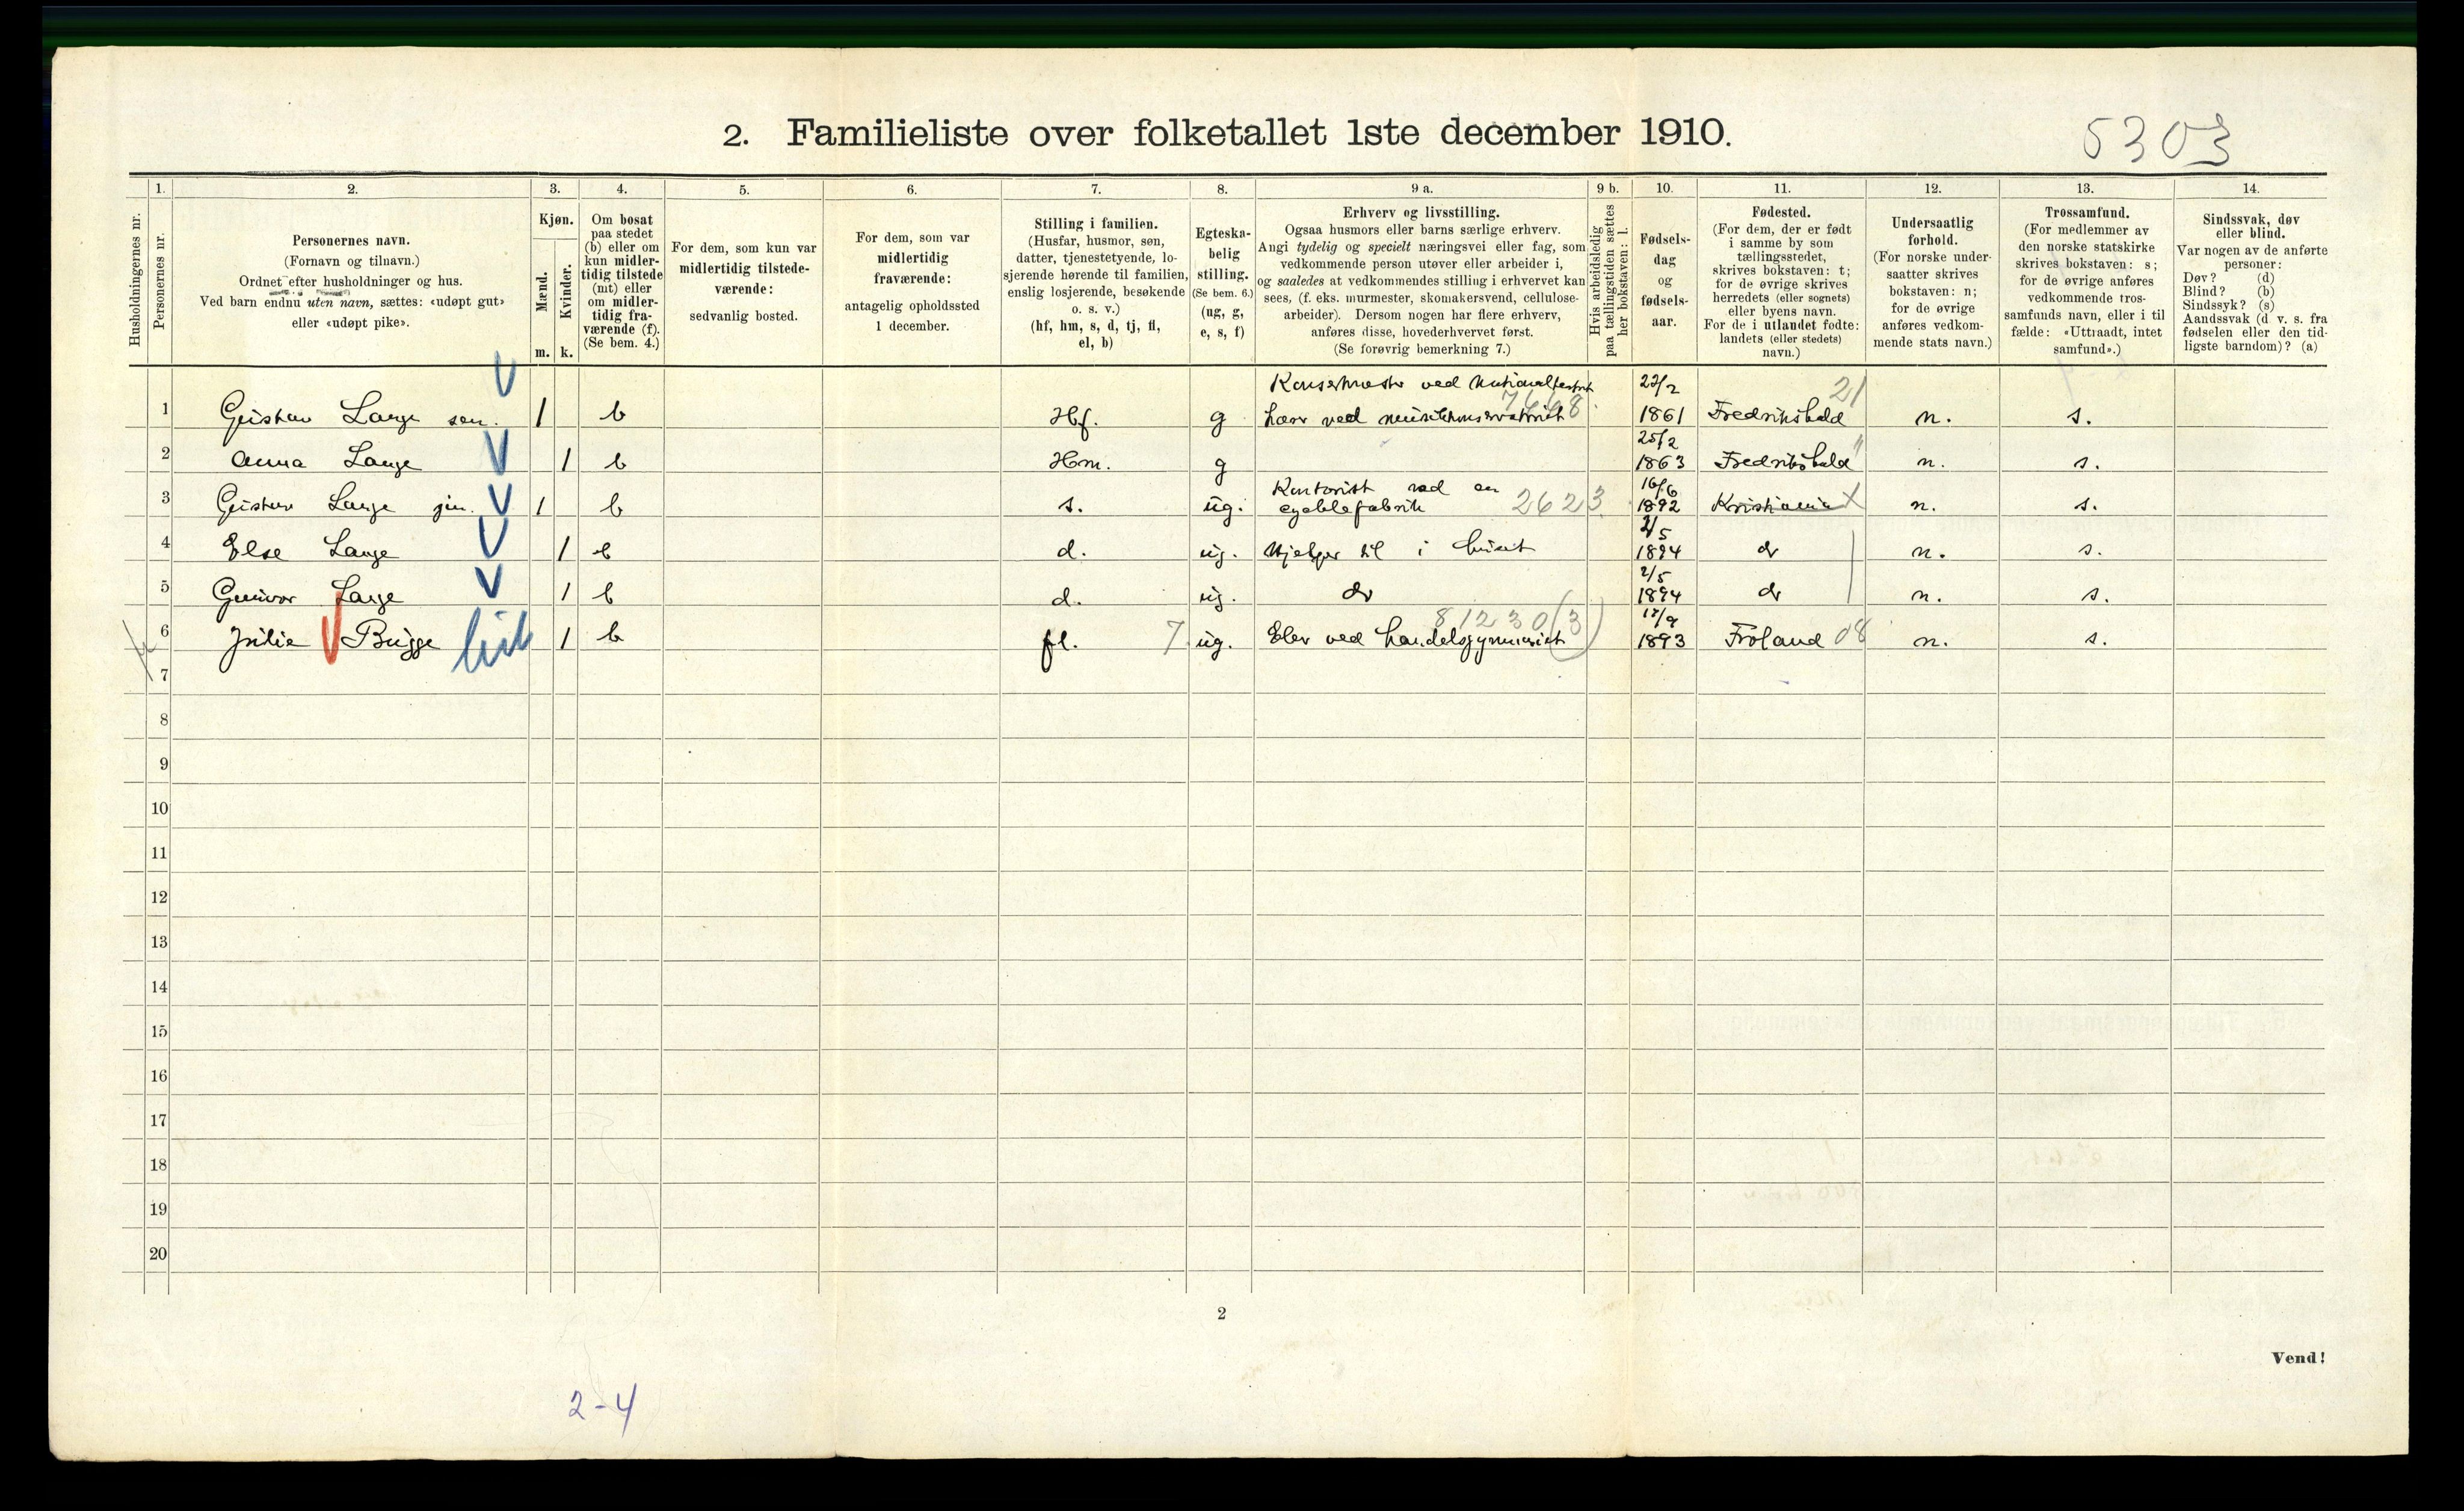 2. Familieliste over folketallet 1ste december 1910.
5303
Husholdningernes nr.
1.
Personernes nr.
2.
Personernes navn.
(Fornavn og tilnavn.)
Ordnet efter husholdninger og hus.
Ved barn endnu uten navn, sættes: «udøpt gut»
eller «udøpt pike».
3.
Kjøn.
Mænd.
Kvinder.
m. k.
4.
Om bosat
paa stedet
(b) eller om
kun midler-
tidig tilstede
(mt) eller
om midler-
tidig fra-
værende (f).
(Se bem. 4.)
5.
For dem, som kun var
midlertidig tilstede-
værende:
sedvanlig bosted.
6.
For dem, som var
midlertidig
fraværende:
antagelig opholdssted
1 december.
7.
Stilling i familien.
(Husfar, husmor, søn,
datter, tjenestetyende, lo-
sjerende hørende til familien,
enslig losjerende, besøkende
o. s. v.)
(hf, hm, s, d, tj, fl,
el, b)
8.
Egteska-
belig
stilling.
(Se bem. 6.)
(ug, g,
e, s, f)
9 a.
Erhverv og livsstilling.
Ogsaa husmors eller barns særlige erhverv.
Angi tydelig og specielt næringsvei eller fag, som
vedkommende person utøver eller arbeider i,
og saaledes at vedkommendes stilling i erhvervet kan
sees, (f. eks. murmester, skomakersvend, cellulose-
arbeider). Dersom nogen har flere erhverv,
anføres disse, hovederhvervet først.
(Se forøvrig bemerkning 7.)
9 b.
Hvis arbeidsledig
paa tællingstiden sættes
her bokstaven: l.
10.
Fødsels-
dag
og
fødsels-
aar.
11.
Fødested.
(For dem, der er født
i samme by som
tællingsstedet,
skrives bokstaven: t;
for de øvrige skrives
herredets (eller sognets)
eller byens navn.
For de i utlandet fødte:
landets (eller stedets)
navn.)
12.
Undersaatlig
forhold.
(For norske under-
saatter skrives
bokstaven: n;
for de øvrige
anføres vedkom-
mende stats navn.)
13.
Trossamfund.
(For medlemmer av
den norske statskirke
skrives bokstaven: s;
for de øvrige anføres
vedkommende tros-
samfunds navn, eller i til
fælde: «Uttraadt, intet
samfund».)
14.
Sindssvak, døv
eller blind.
Var nogen av de anførte
personer:
Døv? (d)
Blind? (b)
Sindssyk? (s)
Aandssvak (d v. s. fra
fødselen eller den tid-
ligste barndom)? (a)
Konsertmester ved Nationalteatret 22/2 21
1 Gustav Lange sen. 1 b Hf. g Lærer ved musikkonservatoriet 1861 Fredrikshald n. s.
25/2
2 Anna Lange 1 b Hm. g 1863 Fredrikshald " n. s.
Kontorist ved en 16/6
3 Gustav Lange jun. 1 b s. ug. cyclefabrik 2623 1892 Kristiania X n. s.
2/5
4 Else Lange 1 b d. ug. Hjelper til i huset 1894 do n. s.
2/5
5 Gunvor Lange 1 b d. ug. do 1894 do n. s.
81230(3)
6 Julie Bugge 1 b fl. 7 ug. Elev ved handelsgymnasiet 1893 Froland 08 n. s.
7
8
9
10
11
12
13
14
15
16
17
18
19
20
2
Vend!
2-4